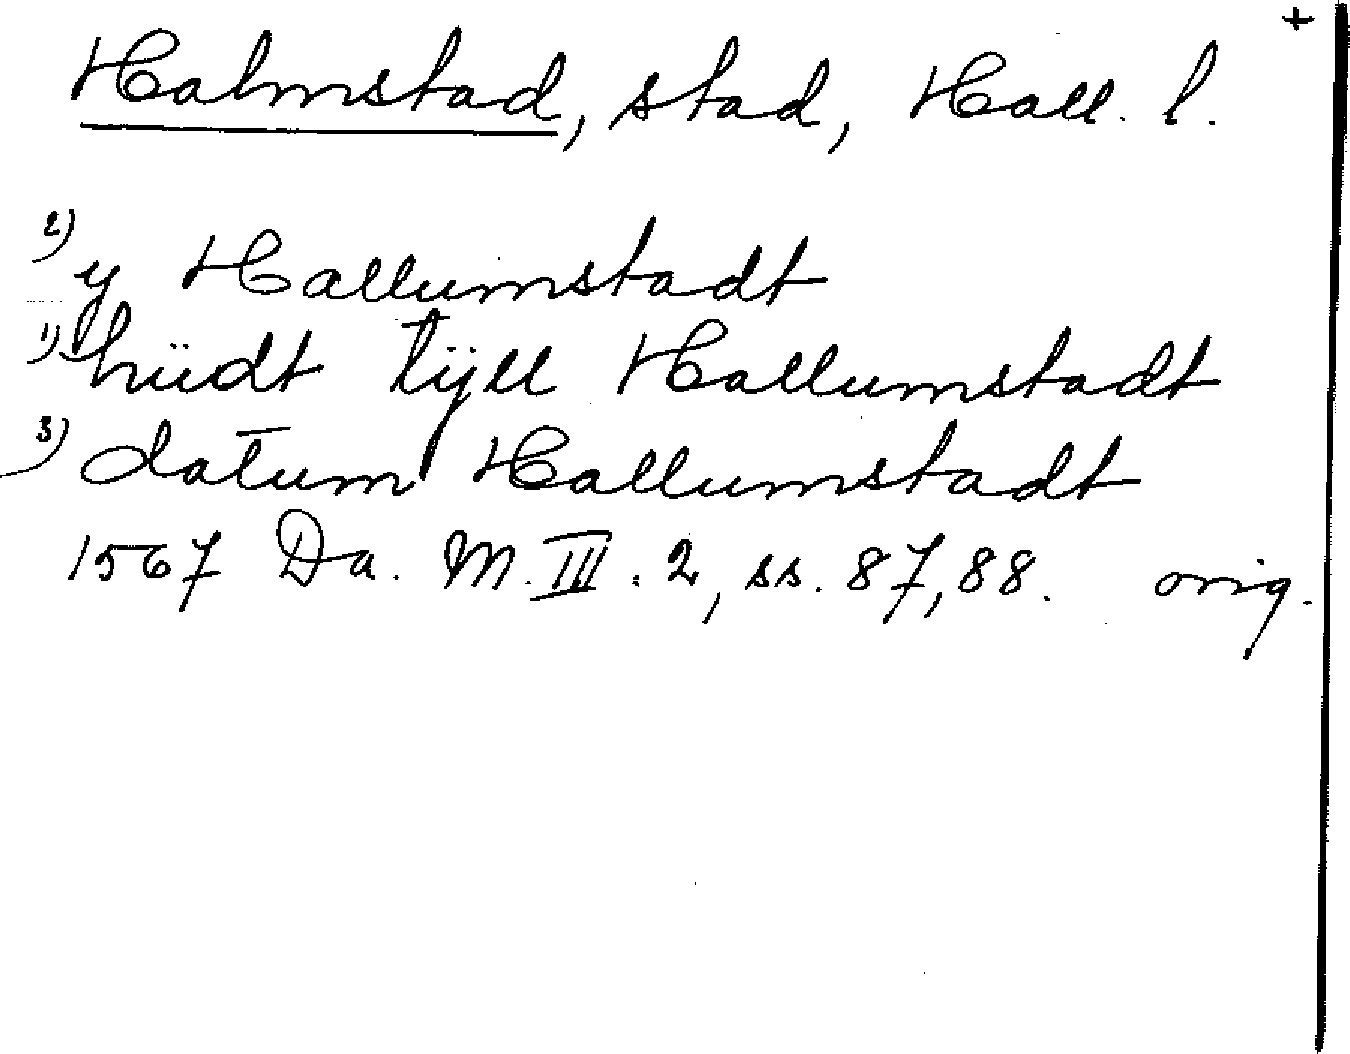 +
Halmstad, stad, Hall. l.
2) y Hallumstadt
1) hüdt tÿll Hallumstadt
3) datum Hallumstadt
1567 Da. M. III. 2, ss. 87, 88. orig.